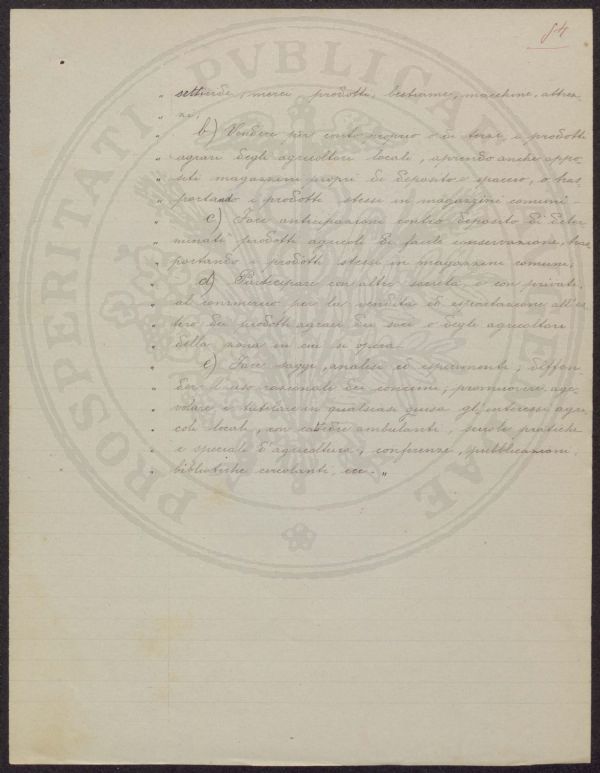 84
" setticide, merci, prodotti, bestiame, macchine, attrez-
" zi;
" b) Vendere per conto proprio o di terzi, i prodotti
" agrari degli agricoltori locali, aprendo anche appo-
" siti magazzini propri di deposito e spaccio, o tras-
" portando i prodotti stessi in magazzini comuni-
" c) Fare anticipazioni contro deposito di deter-
" minati prodotti agricoli di facile conservazione, tras
" portando i prodotti stessi in magazzini comuni;
" d) Partecipare con altre società, o con privati
" al commercio per la vendita ed esportazione all'es
" tero dei prodotti agrari dei soci o degli agricoltori
" della zona in cui si opera-
" e) Fare saggi, analisi ed esperimenti, diffon
" dere l'uso razionale dei concimi, promuovere age-
" volare, e tutelare in qualsiasi guisa gl'interessi agri
" coli locali, con cattedre ambulanti, scuole pratiche
" e speciali d'agricoltura, conferenze, pubblicazioni,
" biblioteche circolanti, ecc. "
PROSPERITATI PVBLICAE